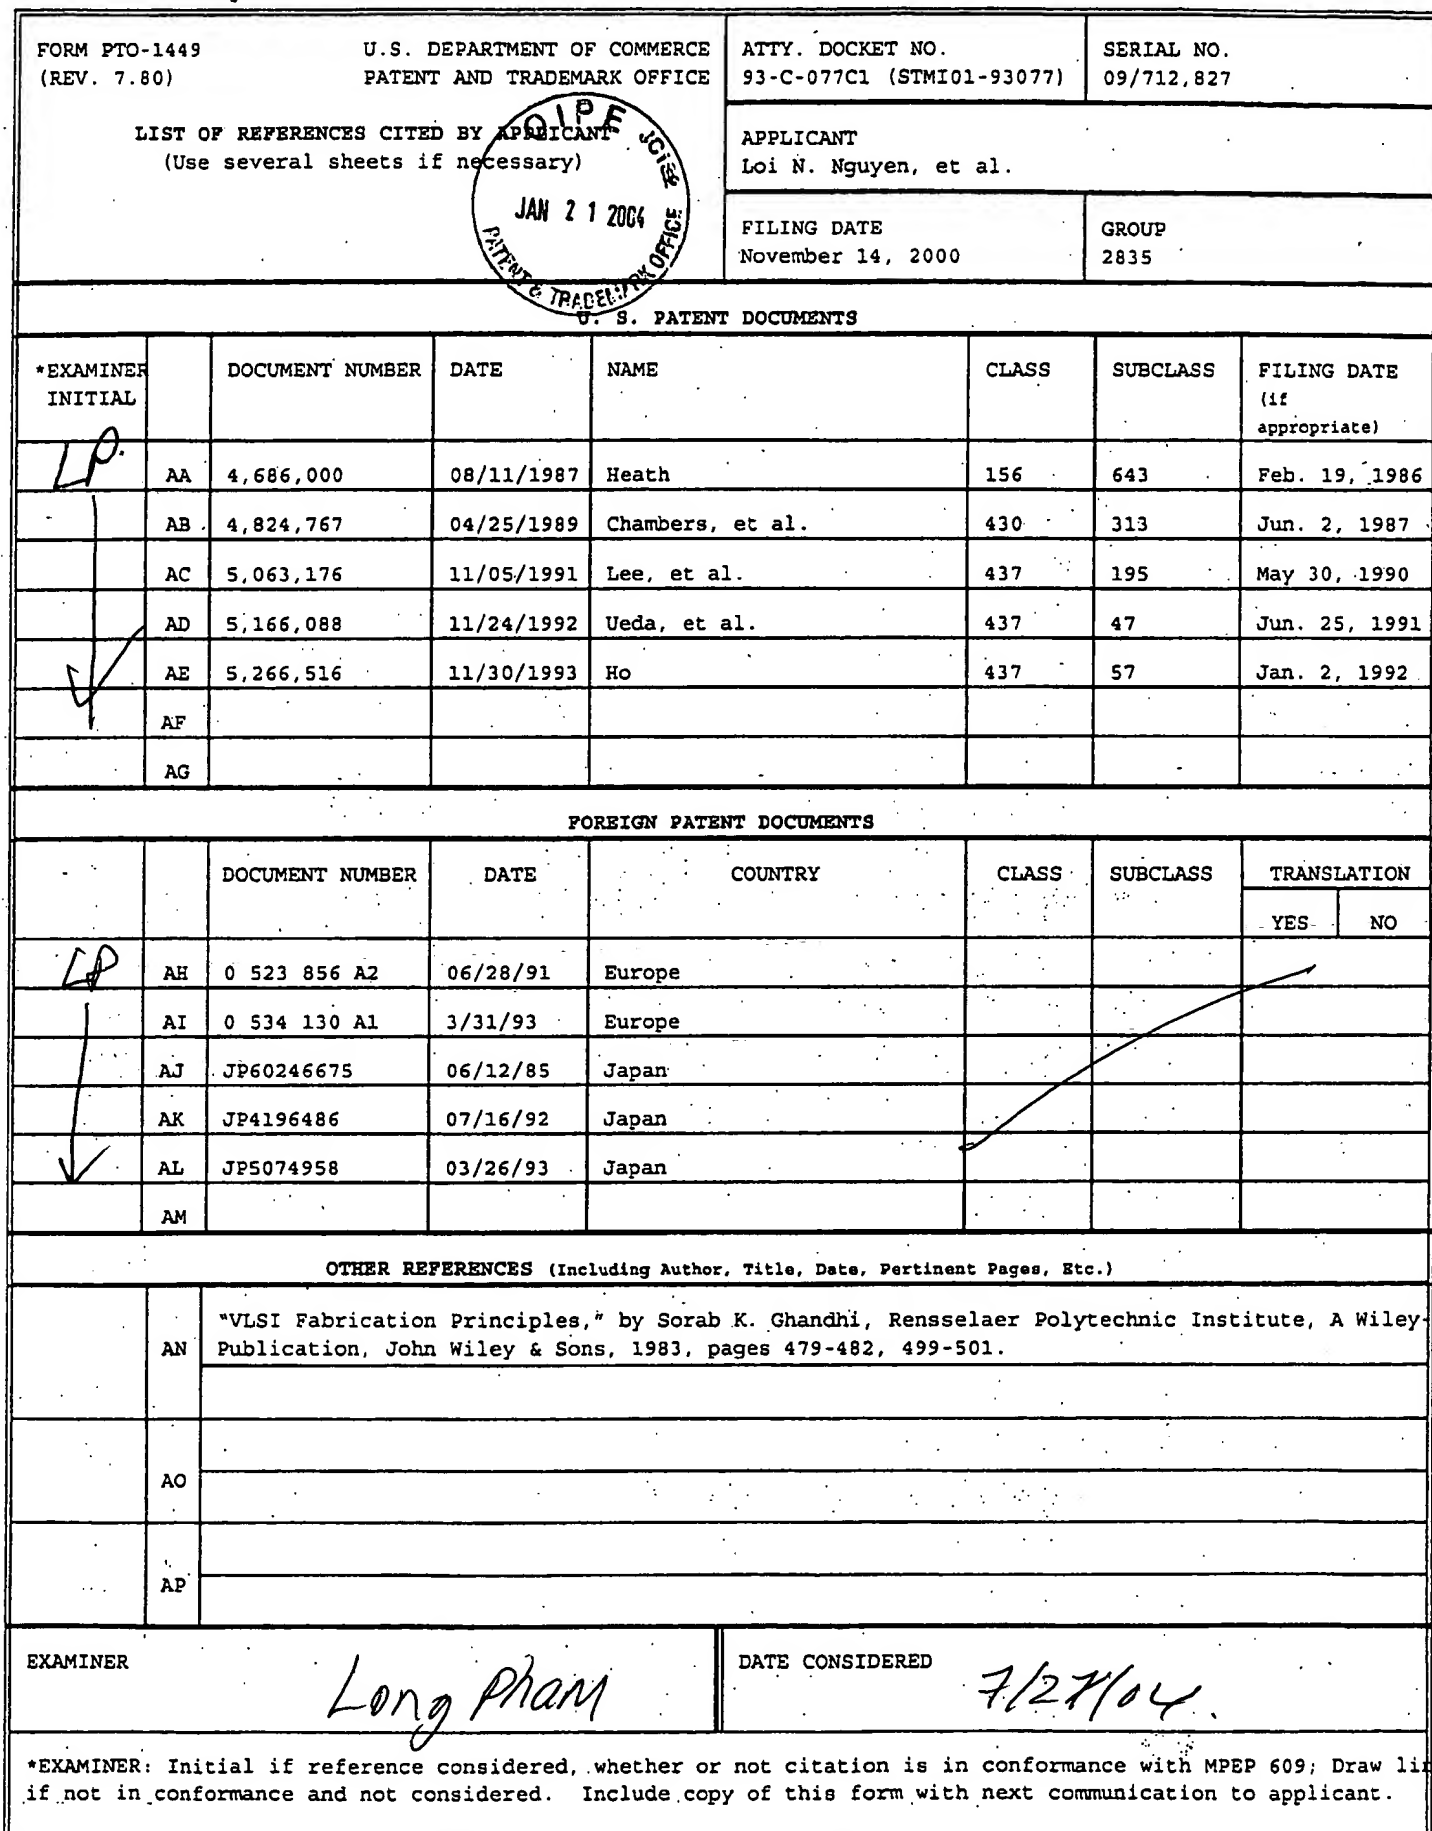 FORM PTO-1449 U.S. DEPARTMENT OF COMMERCE
(REV. 7.80) PATENT AND TRADEMARK OFFICE
ATTY. DOCKET NO.
93-C-077C1 (STMI01-93077)
SERIAL NO.
09/712,827
LIST OF REFERENCES CITED BY APPLICANT
(Use several sheets if necessary)
OIPE
JAN 21 2004
PATENT & TRADEMARK OFFICE
APPLICANT
Loi N. Nguyen, et al.
FILING DATE
November 14, 2000
GROUP
2835
U. S. PATENT DOCUMENTS
*EXAMINER INITIAL DOCUMENT NUMBER DATE NAME CLASS SUBCLASS FILING DATE (if appropriate)
LP. AA 4,686,000 08/11/1987 Heath 156 643 Feb. 19, 1986
AB 4,824,767 04/25/1989 Chambers, et al. 430 313 Jun. 2, 1987
AC 5,063,176 11/05/1991 Lee, et al. 437 195 May 30, 1990
AD 5,166,088 11/24/1992 Ueda, et al. 437 47 Jun. 25, 1991
AE 5,266,516 11/30/1993 Ho 437 57 Jan. 2, 1992
AF
AG
FOREIGN PATENT DOCUMENTS
DOCUMENT NUMBER DATE COUNTRY CLASS SUBCLASS TRANSLATION
YES NO
LP AH 0 523 856 A2 06/28/91 Europe
AI 0 534 130 A1 3/31/93 Europe
AJ JP60246675 06/12/85 Japan
AK JP4196486 07/16/92 Japan
AL JP5074958 03/26/93 Japan
AM
OTHER REFERENCES (Including Author, Title, Date, Pertinent Pages, Etc.)
AN "VLSI Fabrication Principles," by Sorab K. Ghandhi, Rensselaer Polytechnic Institute, A Wiley-
Publication, John Wiley & Sons, 1983, pages 479-482, 499-501.
AO
AP
EXAMINER Long Pham
DATE CONSIDERED 7/27/04.
*EXAMINER: Initial if reference considered, whether or not citation is in conformance with MPEP 609; Draw lin
if not in conformance and not considered. Include copy of this form with next communication to applicant.